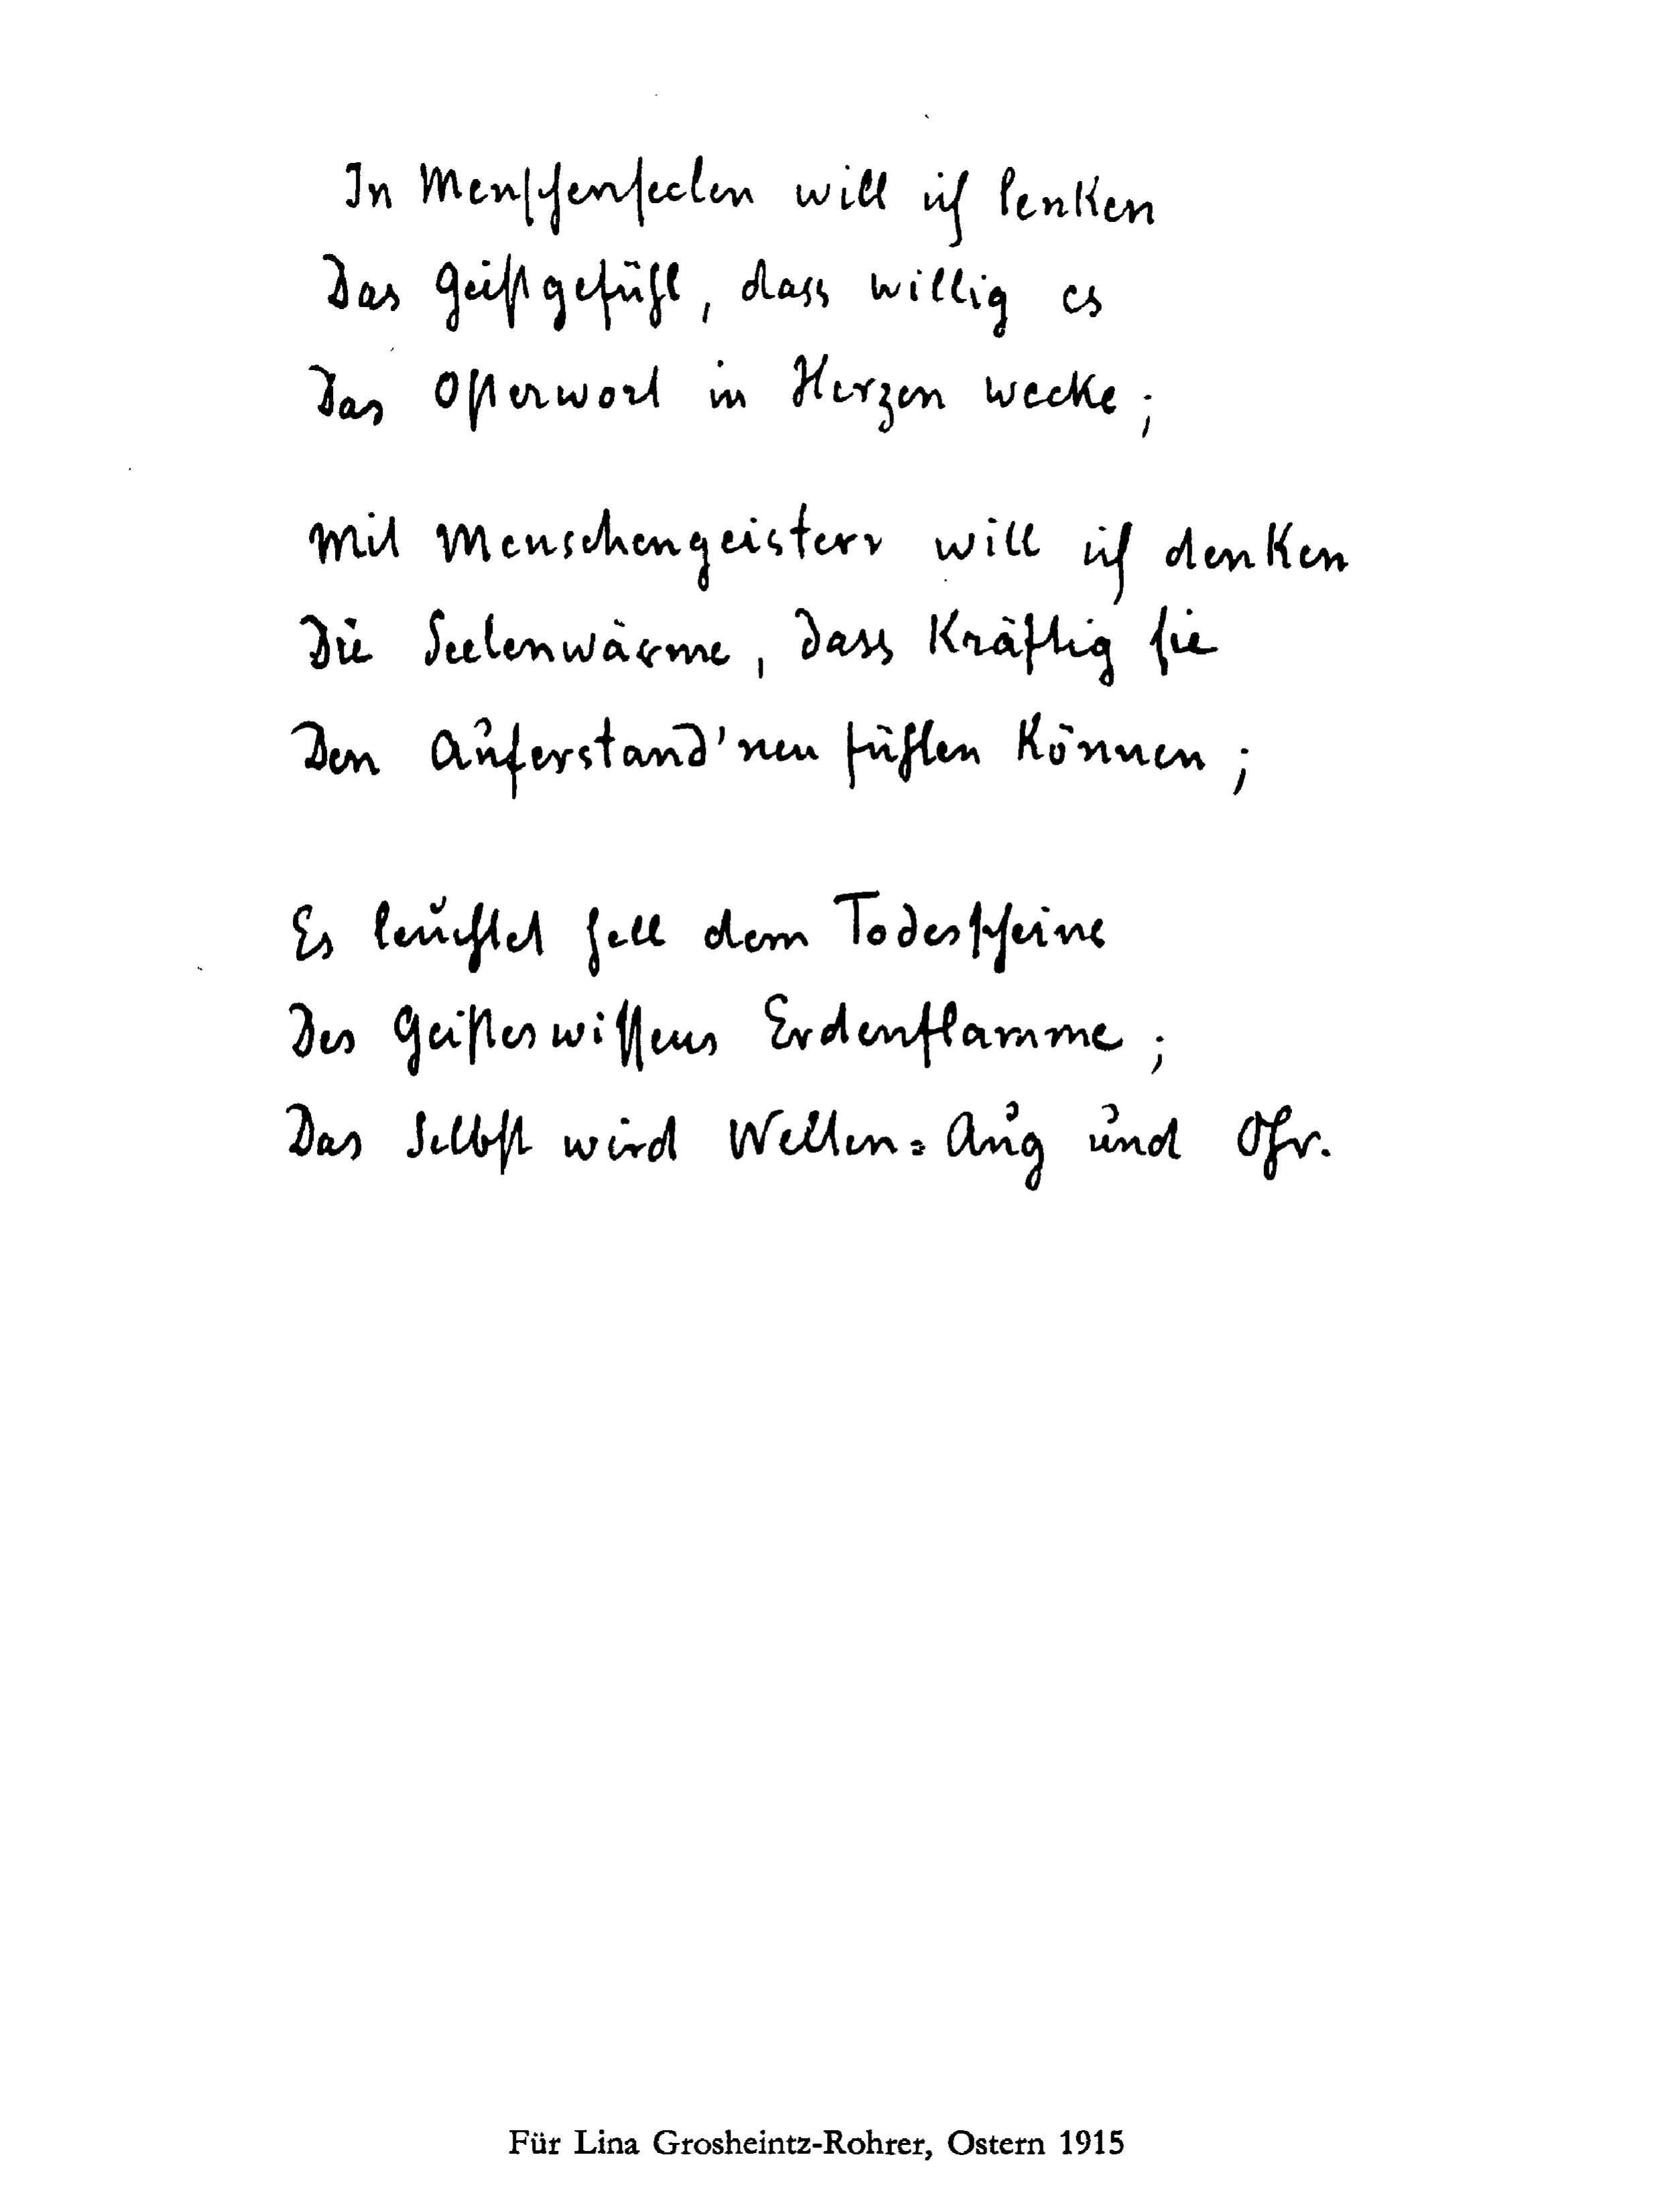 In Menschenseelen will ich lenken
Das Geistgefühl, dass willig es
Das Osterwort in Herzen wecke;
Mit Menschengeistern will ich denken
Die Seelenwärme, dass Kräftig sie
Den Auferstand'nen fühlen Können;
Es leuchtet hell dem Todesscheine
Des Geisteswissens Erdenflamme;
Das Selbst wird Welten=Aug und Ohr.
Für Lina Grosheintz-Rohrer, Ostern 1915